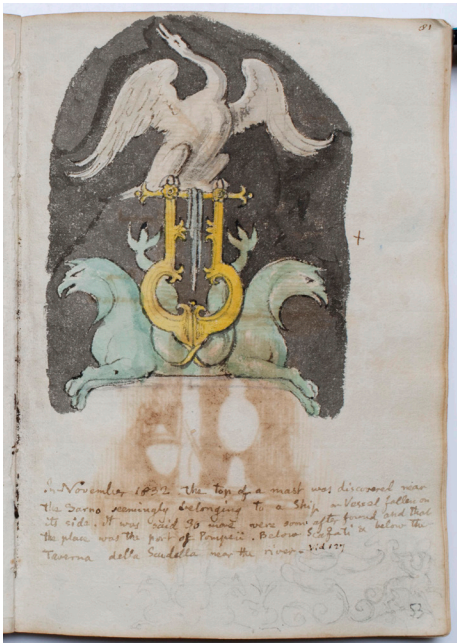 81
In November 1832 the top of a mast was discovered near
the Sarno seemingly belonging to a Ship or Vessel fallen on
its side. It was said 30 more were soon after found and that
the place was the port of Pompeii. Below Scafati & below the
Taverna della Scudella near the river - Vid 127
53